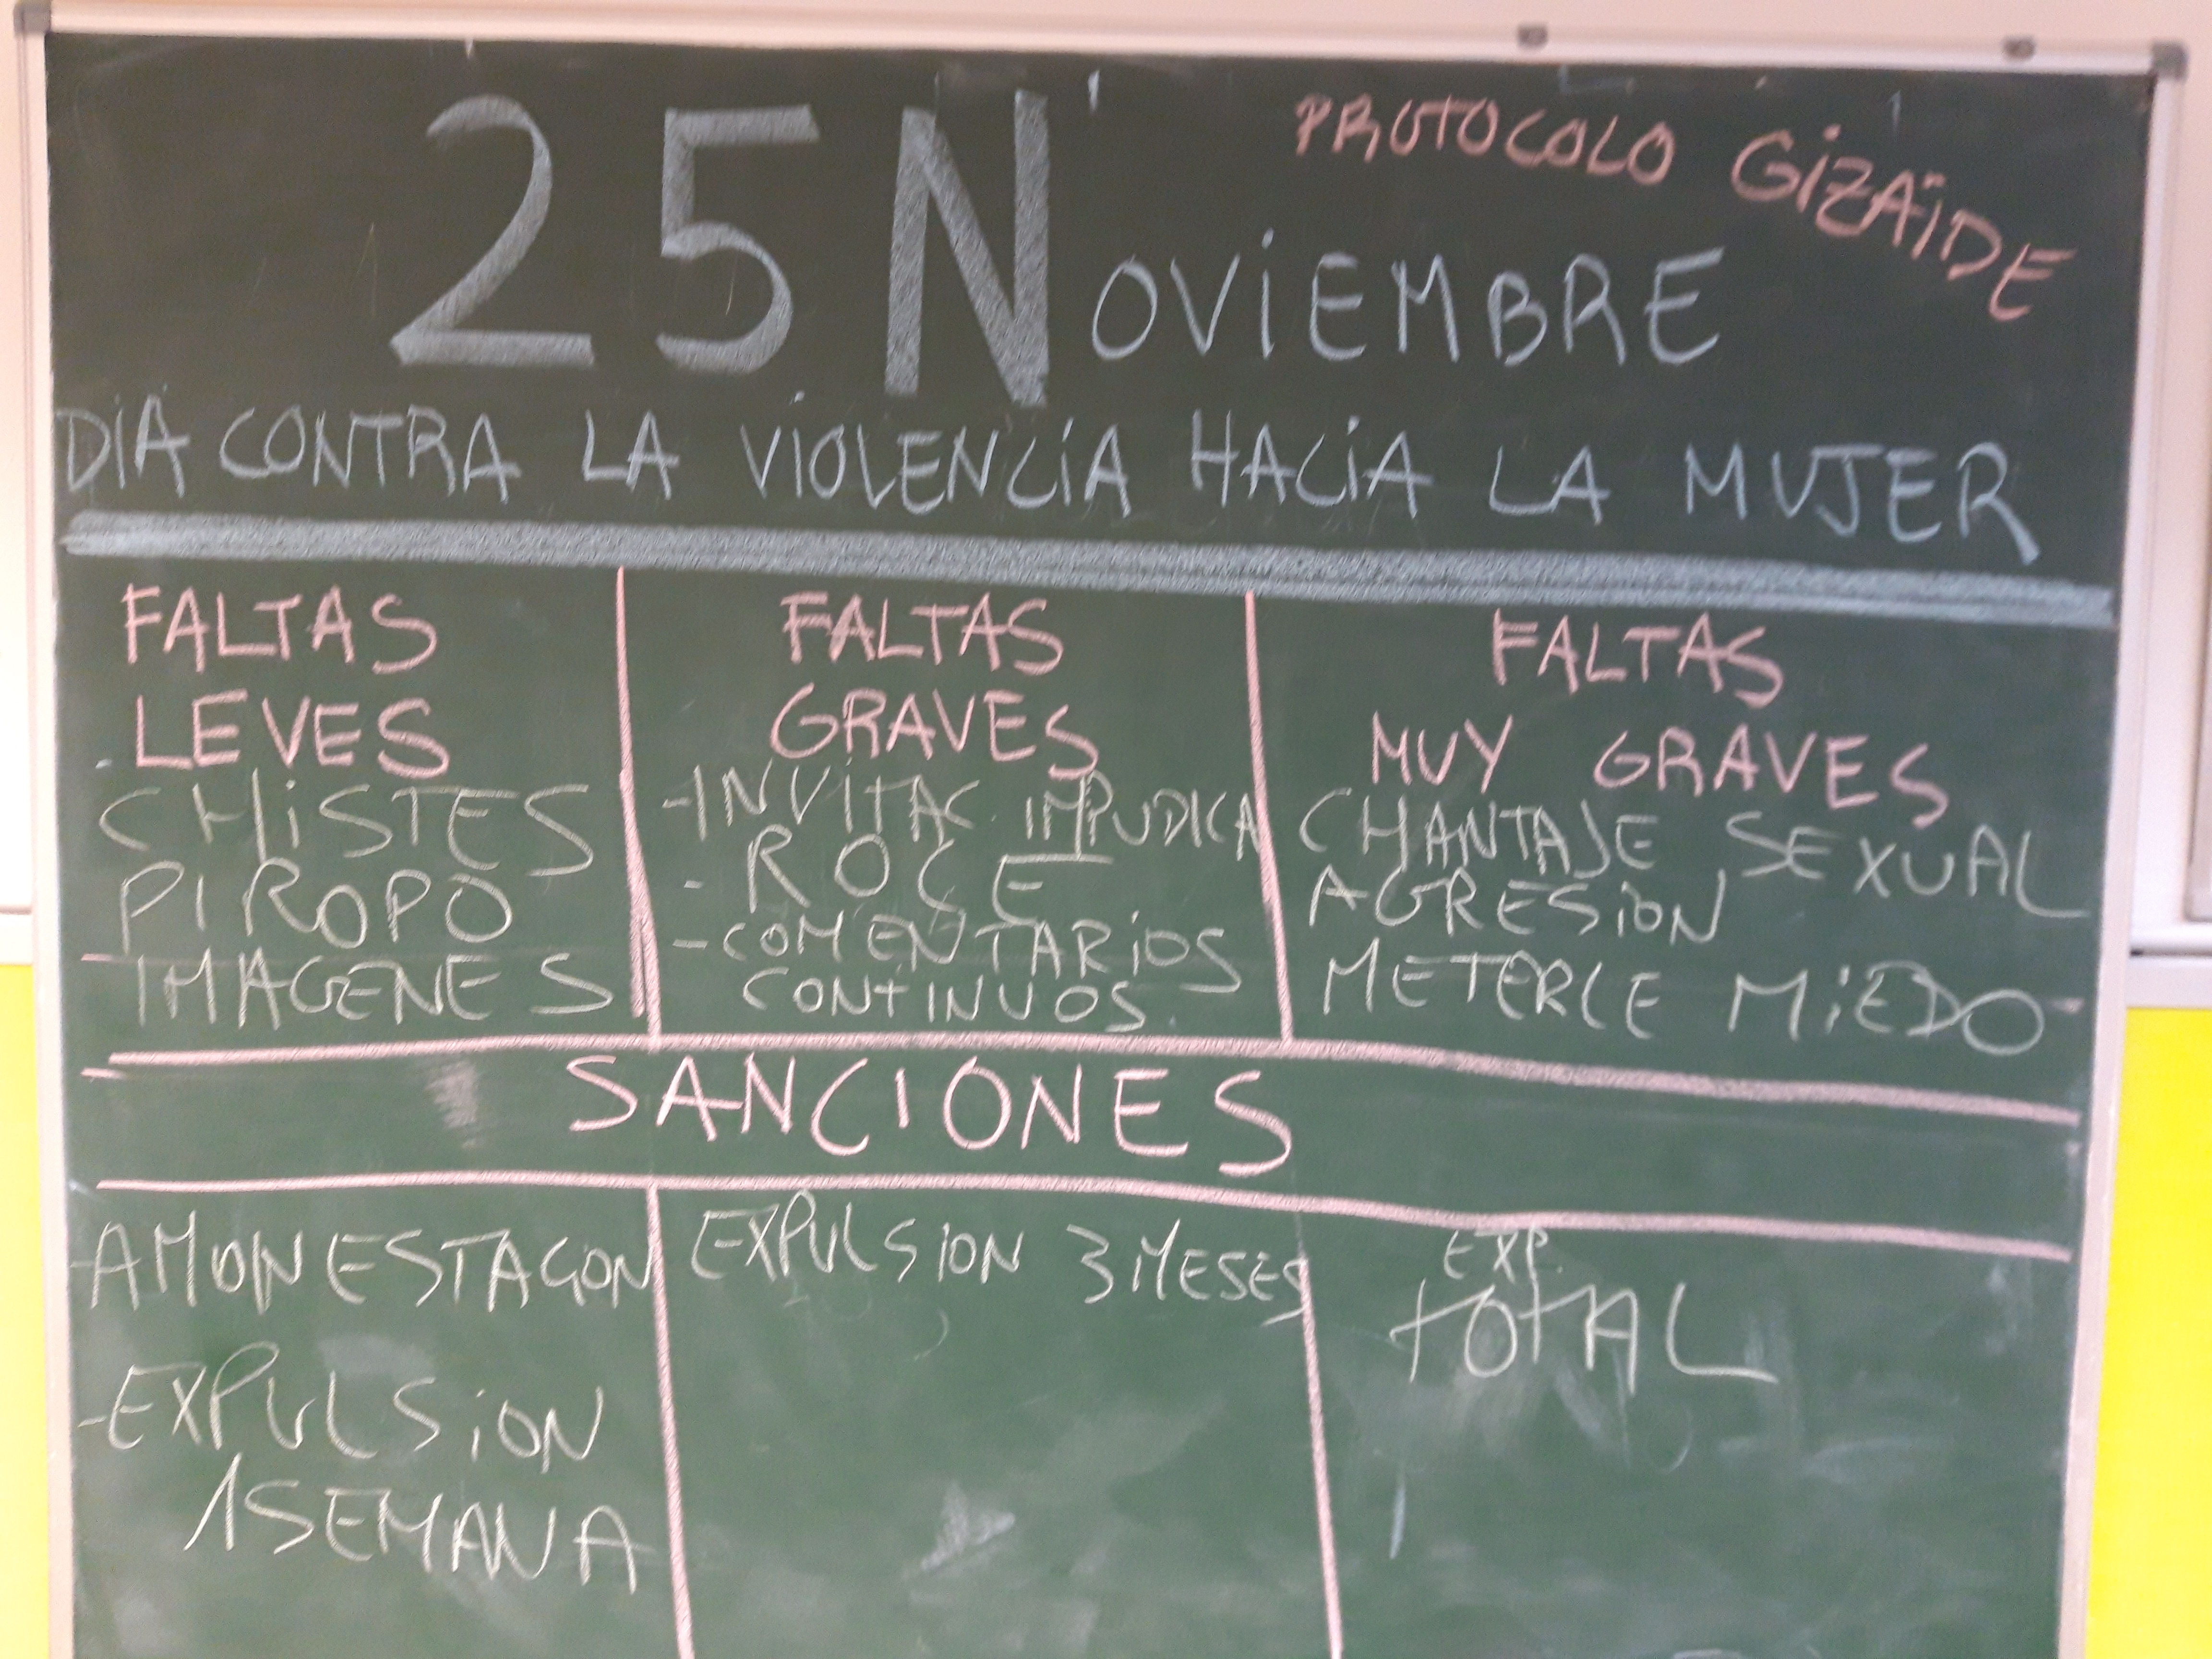 PROTOCOLO GIZAIDE
25 NOVIEMBRE
DIA CONTRA LA VIOLENCIA HACIA LA MUJER
FALTAS
LEVES
CHISTES
PIROPO
IMAGENES
FALTAS
GRAVES
-INVITAC. IMPUDICA
- ROCE
- COMENTARIOS
CONTINUOS
FALTAS
MUY GRAVES
CHANTAJE SEXUAL
AGRESION
METERLE MIEDO
SANCIONES
-AMONESTACION
-EXPULSION
1 SEMANA
EXPULSION 3 MESES
EXP.
TOTAL